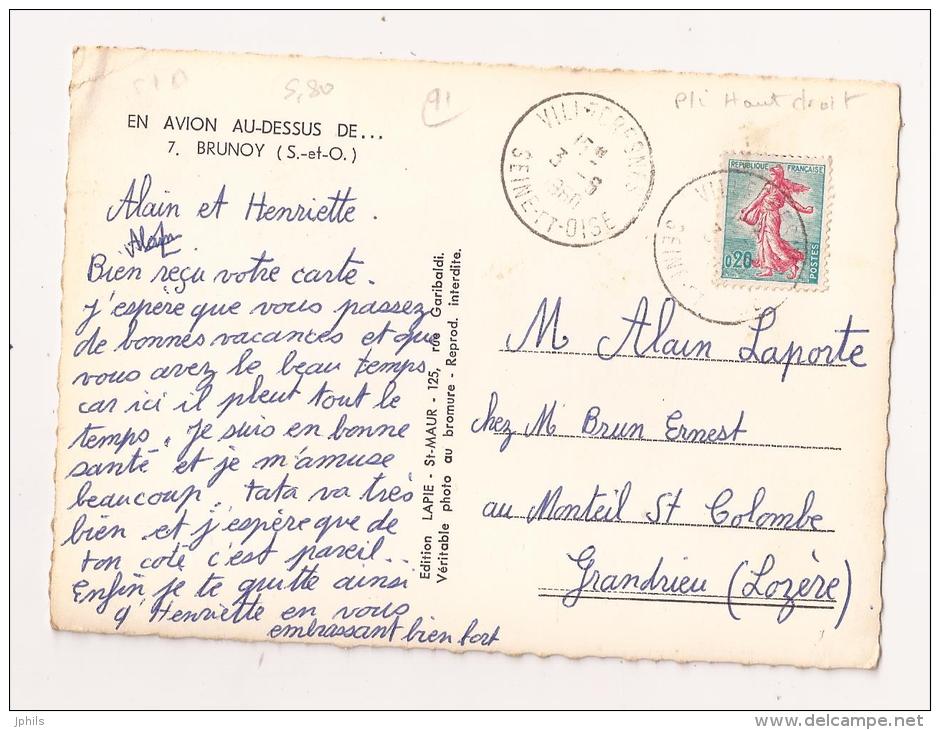 5,80
91
Pli Haut droit
EN AVION AU-DESSUS DE...
7. BRUNOY (S.-et-O.)
Alain et Henriette.
Bien reçu votre carte.
J'espère que vous passez
de bonnes vacances et que
vous avez le beau temps
car ici il pleut tout le
temps. Je suis en bonne
santé et je m'amuse
beaucoup. Tata va très
bien et j'espère que de
ton coté c'est pareil..
Enfin je te quitte ainsi
q' Henriette en vous
embrassant bien fort
Edition LAPIE - St-MAUR - 125, rue Garibaldi.
Véritable photo au bromure - Reprod. interdite.
SEINE-ET-OISE
REPUBLIQUE FRANÇAISE
0,20
POSTES
M. Alain Laporte
chez M. Brun Ernest
au Monteil St Colombe
Grandrieu (Lozère)
jphils
www.delcampe.net